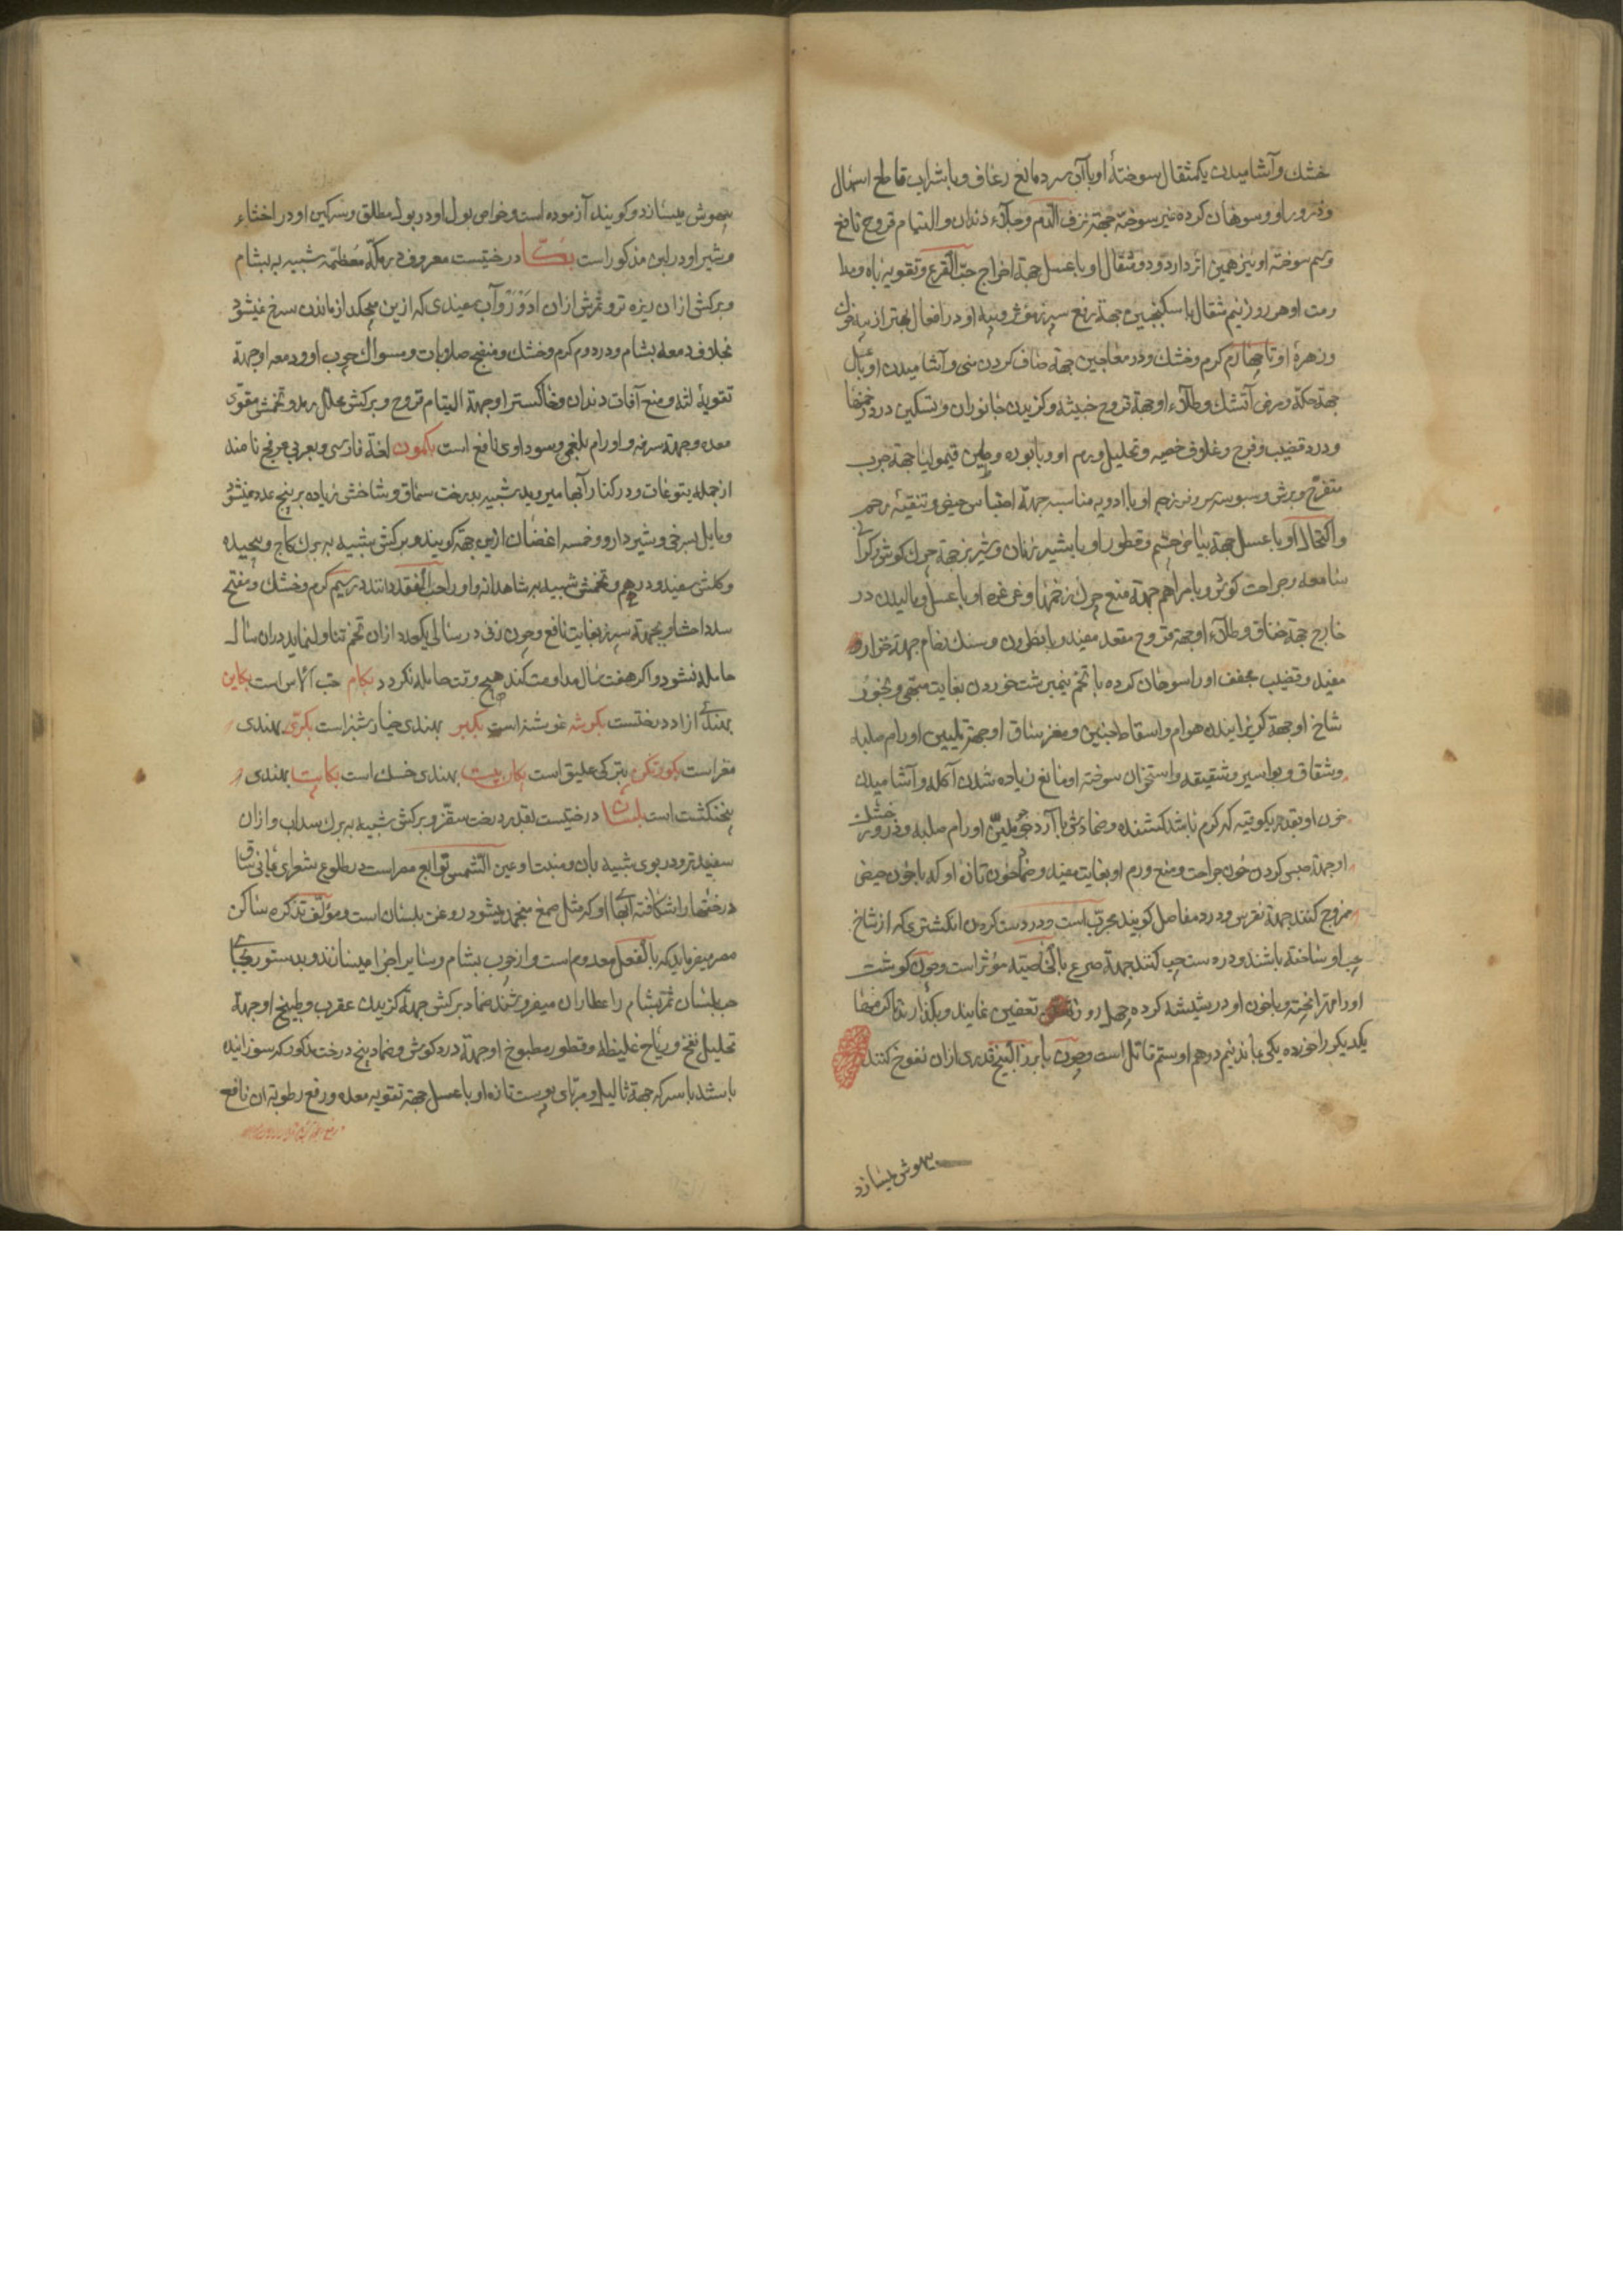 خشك وآشاميدن يكمثقال سوختهٔ او باآب سرد مانع رعاف وبا شراب قاطع اسهال
وذرور او وسوهان كرده غير سوخته جهة نزف الدم وجلاء دندان والتيام قروح نافع
وسم سوختهٔ او نيز همين اثر دارد ودو مثقال او با عسل جهة اخراج حب القرع وتقويه باه ومدا
ومت او هر روز نيم مثقال با سكنجبين جهة رفع سپرز مؤثر وپيه او در افعال بهتر از پيه خوك
وزهرهٔ او تا چهارم كرم وخشك ودر معاجين جهة صاف كردن منى وآشاميدن او با عسل
جهة حكة ومرض آتشك وطلاء او جهة قروح خبيثه وكزيدن جانوران وتسكين درد زخمها
ودرد قضيب وفرج وغلوفى خصيه وتحليل ورم او وبا بوره وطين قيموليا جهة جرب
متقرح وبرش وسبوسه سر وفرزجه او با ادويه مناسبه جهة احتباس حيض وتنقيه رحم
واكتحال او با عسل جهة بياض چشم وقطور او با شير زنان وشير بز جهة چرك كوش وكرانى
سامعه وجراحت كوش وبا مراهم جهة منع چرك زخمها وغرغره او با عسل وماليدن در
خارج جهة خناق وطلاء او جهة قروح مقعد مفيد وبا نطرون وسنك جهة حزاز و
مفيد وقضيب مجفف او را سوهان كرده با تخم نيمبرشت خوردن بغايت مبهى وبخور
شاخ او جهة كريزانيدن هوام واسقاط جنين ومغز ساق او جهة تليين اورام صلبه
وشقاق وبواسير وشقيقه واستخوان سوخته او مانع زياده شدن آكله وآشاميدن
خون او بقدر يكوقيه كه كرم باشد كشنده وضمادش با آرد جو ملين اورام صلبه وذرور خشك
او جهة حبس كردن خون جراحت ومنع ورم او بغايت مفيد وضماد خون تازه او كه با خون حيض
ممزوج كنند جهة نقرس ودرد مفاصل كويند مجرب است ودر دست كردن انكشترى كه از شاخ
چپ او ساخته باشند ودر دست چپ كنند جهة صرع بالخاصيه مؤثر است وچون كوشت
او را مهرا پخته وبا خون او در شيشه كرده چهل روز تعفين نمايند وبكذارند تا كرمها
يكديكر را خورده يكى بماند نيم درهم او سم قاتل است وچون با بزر البنج قدرى ازان نفوخ كنند
بيهوش ميسازد
بيهوش ميسازد وكويند آزموده است وخواص بول او در بول مطلق وسركين او در اخثاء
وشير او در لبن مذكور است بكا درختيست معروف در مكهٔ معظمه شبيه به بشام
وبركش ازان ريزه تر وثمرش ازان ادور وآب سفيدى كه ازين ميچكد از ماندن سرخ نميشود
بخلاف دمعه بشام ودر دوم كرم وخشك ومنضج صلابات ومسواك چوب او ودمعه او جهة
تقويهٔ لثه ومنع آفات دندان وخاكستر او جهة التيام قروح وبركش محلل رمد وتخمش مقوى
معده وجهة سرفه واورام بلغمى وسوداوى نافع است بكمون لغة فارسى وبعربى عرفج نامند
ازجمله يتوعات ودر كنار آبها ميرويد شبيه بدرخت سماق وشاخش زياده بر پنج عدد نميشود
ومايل بسرخى وشير دار وخمسه اغصان ازين جهة كويند وبركش شبيه به برك كاج وپيچيده
وكلش سفيد ودرهم وتخمش شبيه به شاهدانه واو را حب الفقد دانند در سيم كرم وخشك ومفتح
سدد احشا وبجهة سپرز بغايت نافع وچون زنى در سالى يكعدد ازان تخم تناول نمايد دران سال
حامله نشود واكر هفت سال مداومت كند هيچ وقت حامله نكردد بكام حب آلاس است بكاين
بهندى ازاد درختست بكوشه غوشنه است بكبر بهندى خيار شنبر است بكرى بهندى
مغر است بكورتكن بتركى عليق است بكاريست بهندى خسك است بكاپتا بهندى
پنجنكشت است بلسان درختيست بقدر درخت سقز وبركش شبيه به برك سداب وازان
سفيدتر ودر بوى شبيه بان ومنبت او عين الشمس توابع مصر است در طلوع شعراى يمانى ساق
درختها را شكافته آنچه او كه مثل صمغ منجمد ميشود روغن بلسان است ومؤلف تذكره ساكن
مصر ميفرمايد كه بالفعل معدوم است واز چوب بشام وساير اجزا ميسازند وبدستور بجاى
حب بلسان ثمر بشام را عطاران ميفروشند ضماد بركش جهة كزيدن عقرب وطبيخ او جهة
تحليل نفخ ورياح غليظه وقطور مطبوخ او جهة درد كوش وضماد بيخ درخت مذكور كه سوزانيده
باشند با سركه جهة ثاليل ومرباى پوست تازه او با عسل جهة تقويه معده ورفع رطوبة ان نافع